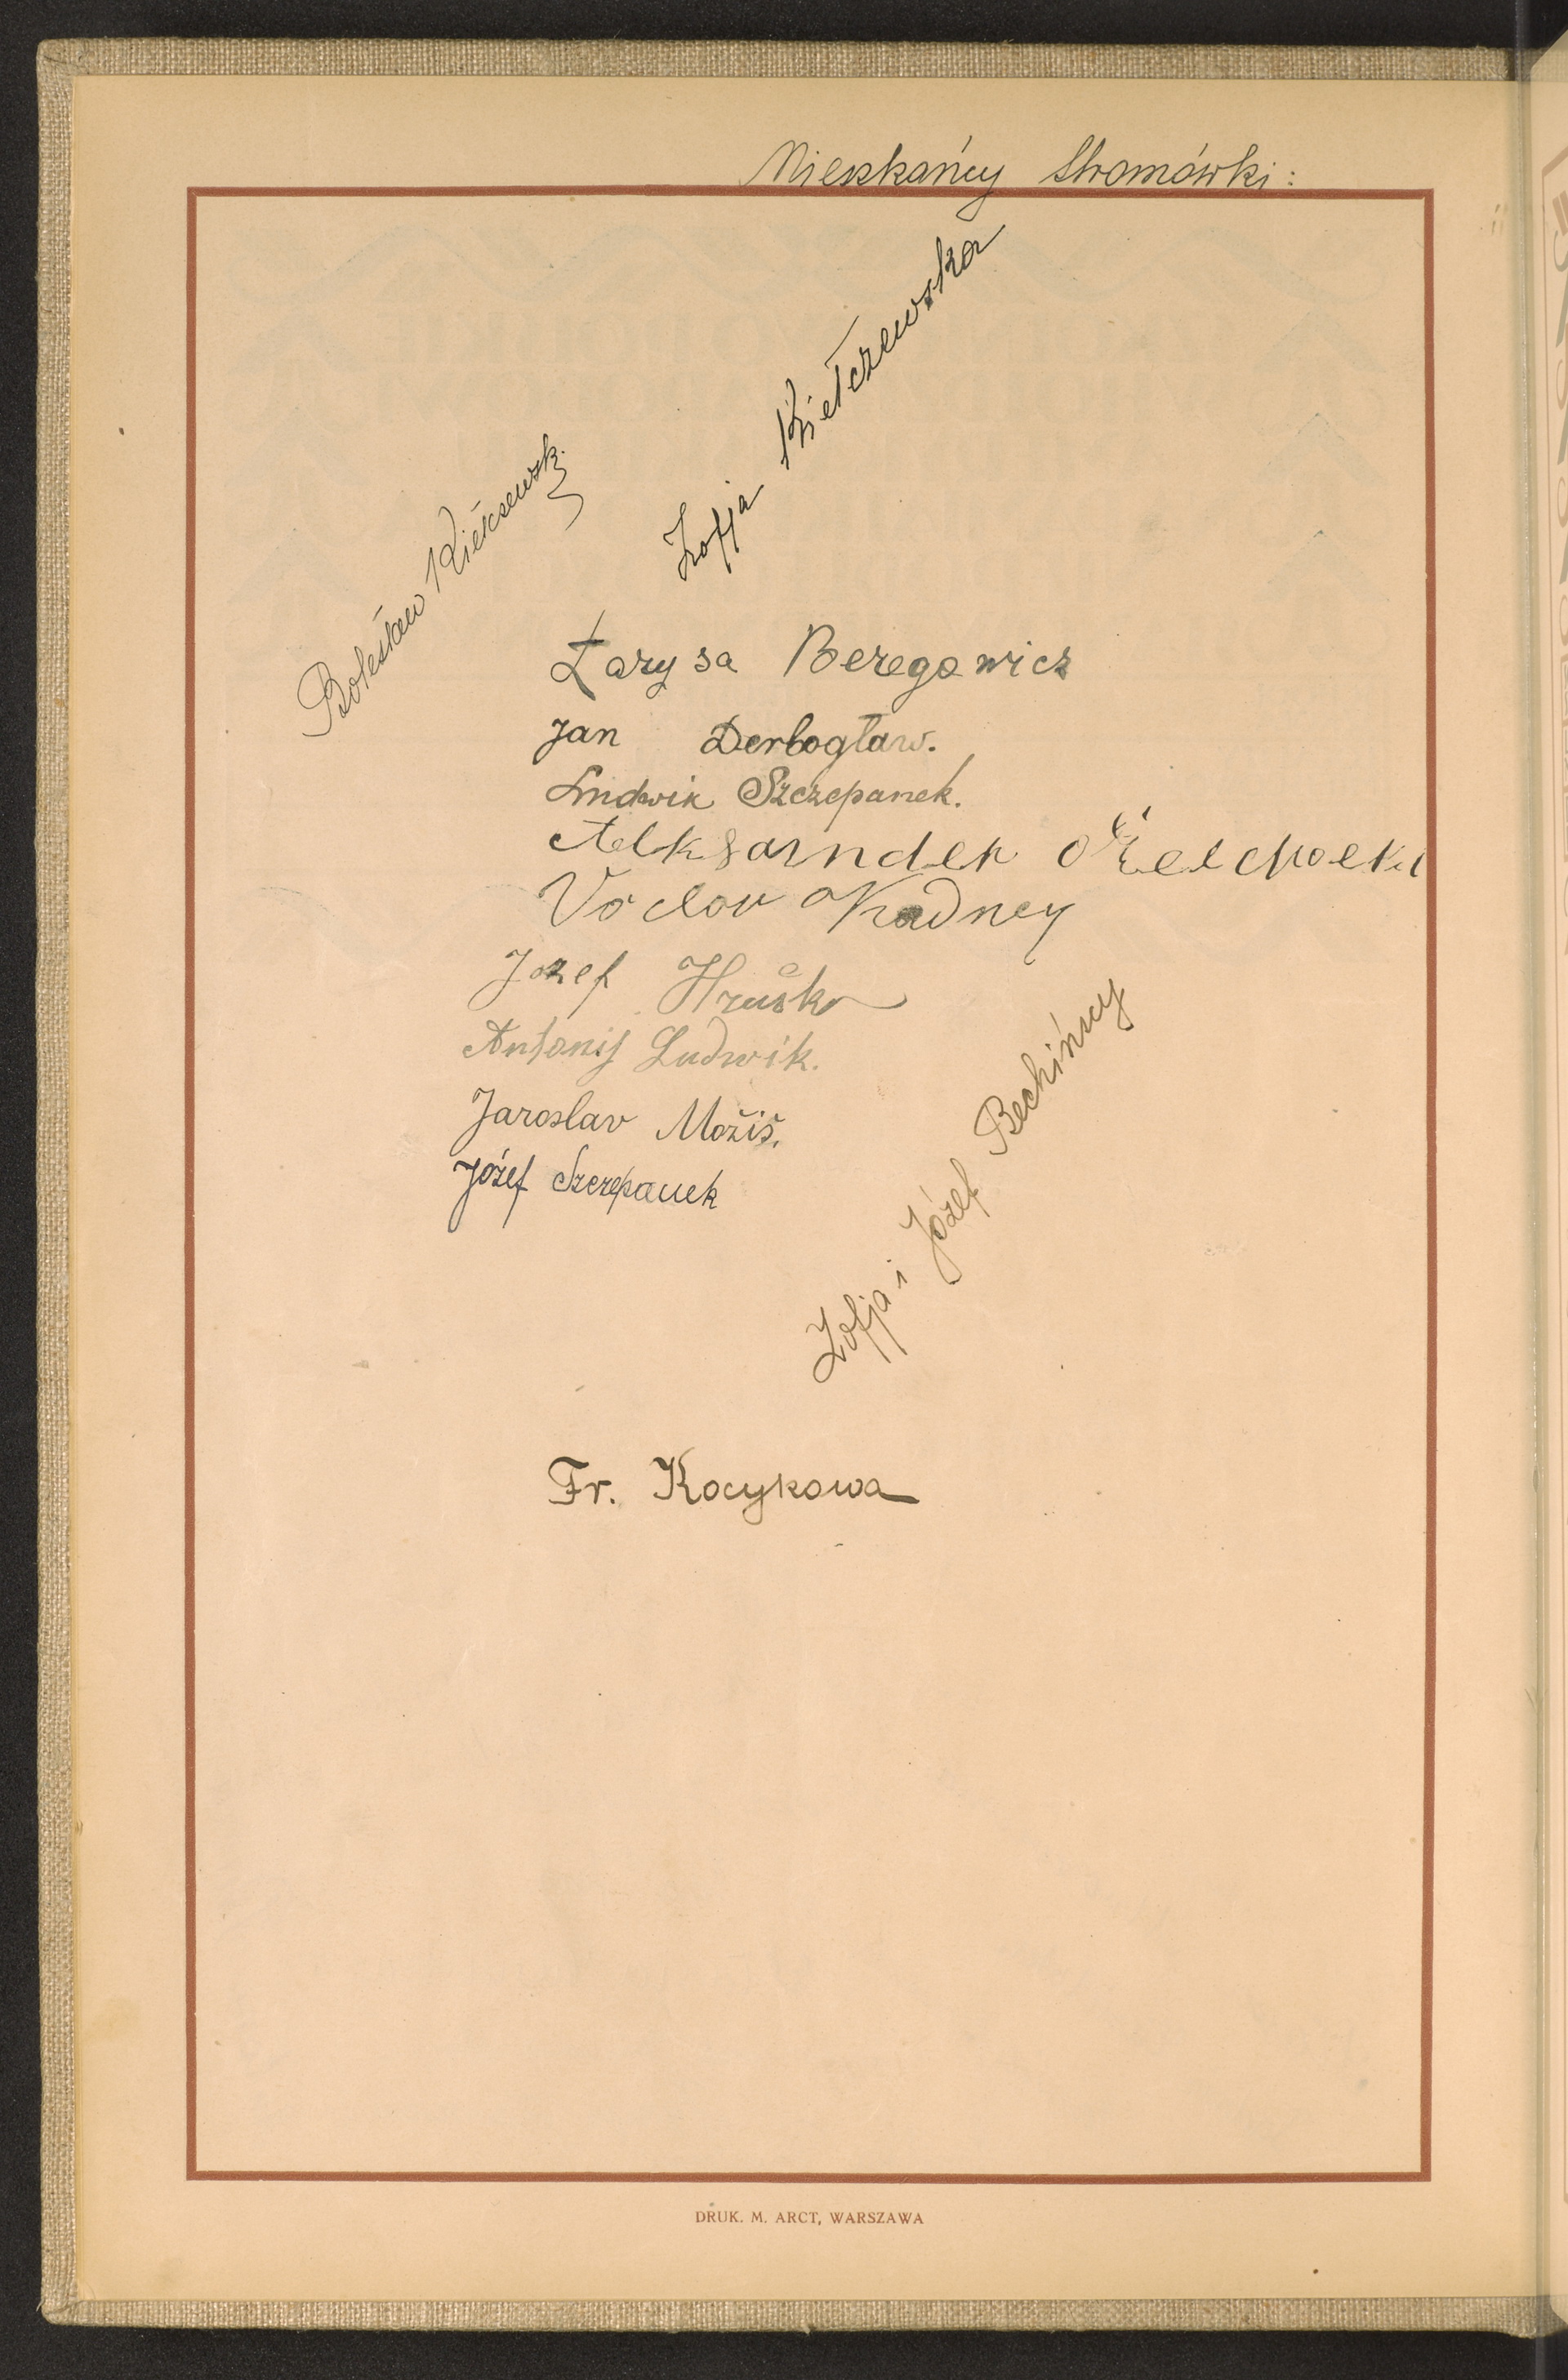 Mieszkańcy Stromówki:
Zofja Kiełczewska
Bolesław Kiełczewski
Łarysa Beregowicz
Jan Derbogław.
Ludwik Szczepanek.
Aleksarnder
Vaclav Kadney
Jozef Hruška
Antonij Ludwik.
Jaroslav Možiš.
Józef Szczepanek
Zofja i Józef Bechińscy
Fr. Kocykowa
DRUK. M. ARCT, WARSZAWA